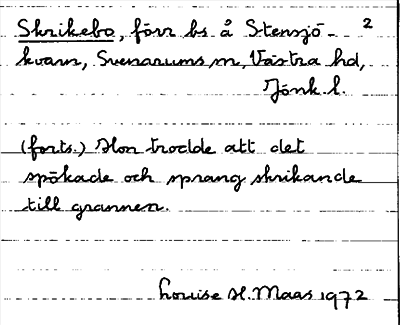 Skrikebo, förr bs å Stensjö- 2
kvarn, Svenarums sn, Västra hd,
Jönk. l.
(forts.) Hon trodde att det
spökade och sprang skrikande
till grannen.
Louise H. Maas 1972